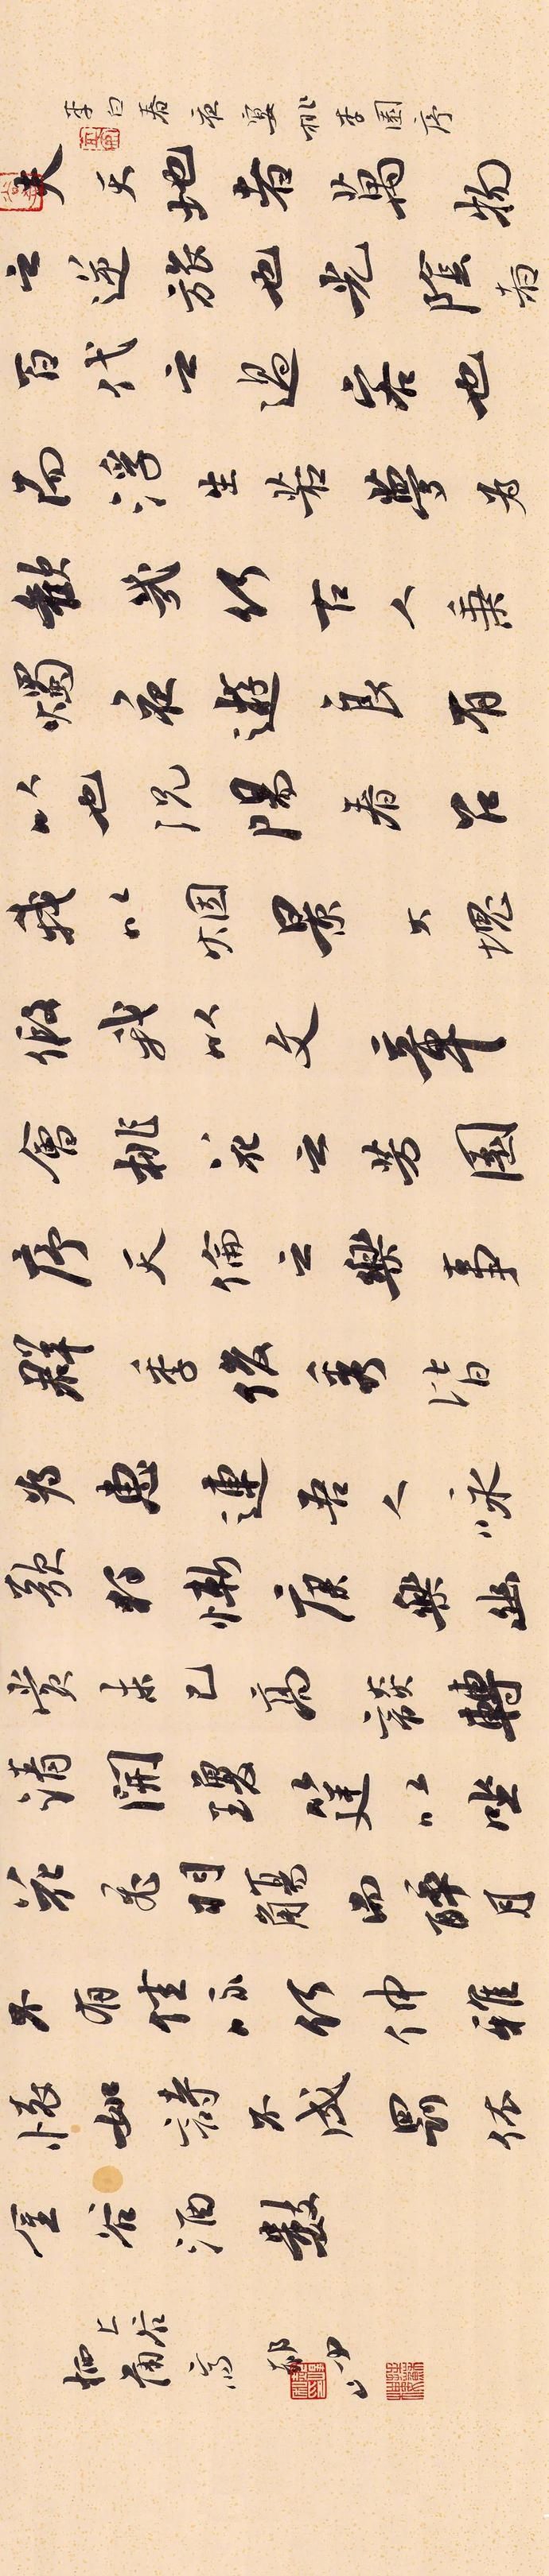 李白春夜宴桃李園序
夫天地者萬物
之逆旅也光陰者
百代之過客也
而浮生若夢為
歡幾何古人秉
燭夜遊良有
以也況陽春召
我以烟景大塊
假我以文章
會桃花之芳園
序天倫之樂事
群季俊秀皆
為惠連吾人咏
歌獨慚康樂幽
賞未已高談轉
清開瓊筵以坐
花飛羽觴而醉月
不有佳咏何伸雅
懷如詩不成罰依
金谷酒數
上谷